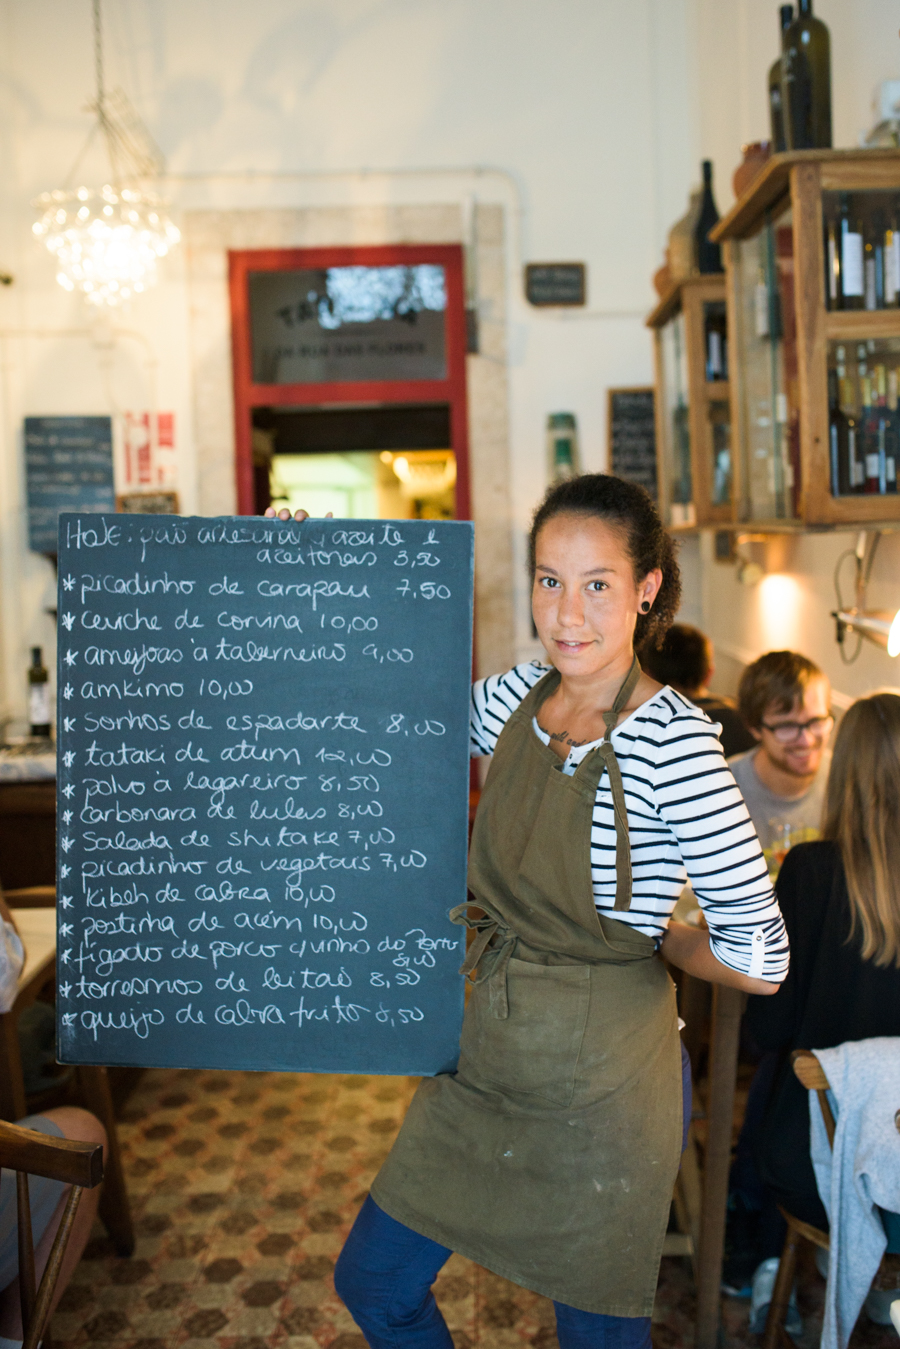 DA RUA DAS FLORES
Hoje: pão artesanal, azeite e
azeitonas 3,50
* picadinho de carapau 7,50
* ceviche de corvina 10,00
* ameijoas à taberneiro 9,00
* amkimo 10,00
* sonhos de espadarte 8,00
* tataki de atum 12,00
* polvo à lagareiro 8,50
* carbonara de lulas 8,00
* salada de shitake 7,00
* picadinho de vegetais 7,00
* kibeh de cabra 10,00
* postinha de acém 10,00
* fígado de porco c/vinho do Porto
8,00
* torresmos de leitão 8,50
* queijo de cabra frito 8,50